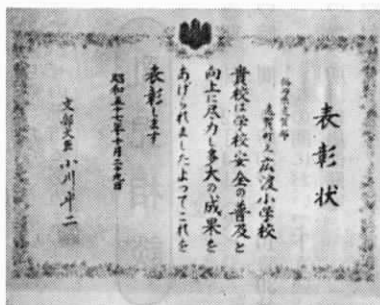 表彰状
福岡県遠賀郡
遠賀町立広渡小学校
貴校は学校安全の普及と
向上に尽力し多大の成果を
あげられましたよってこれを
表彰します
昭和五十七年十月二十九日
文部大臣 小川平二